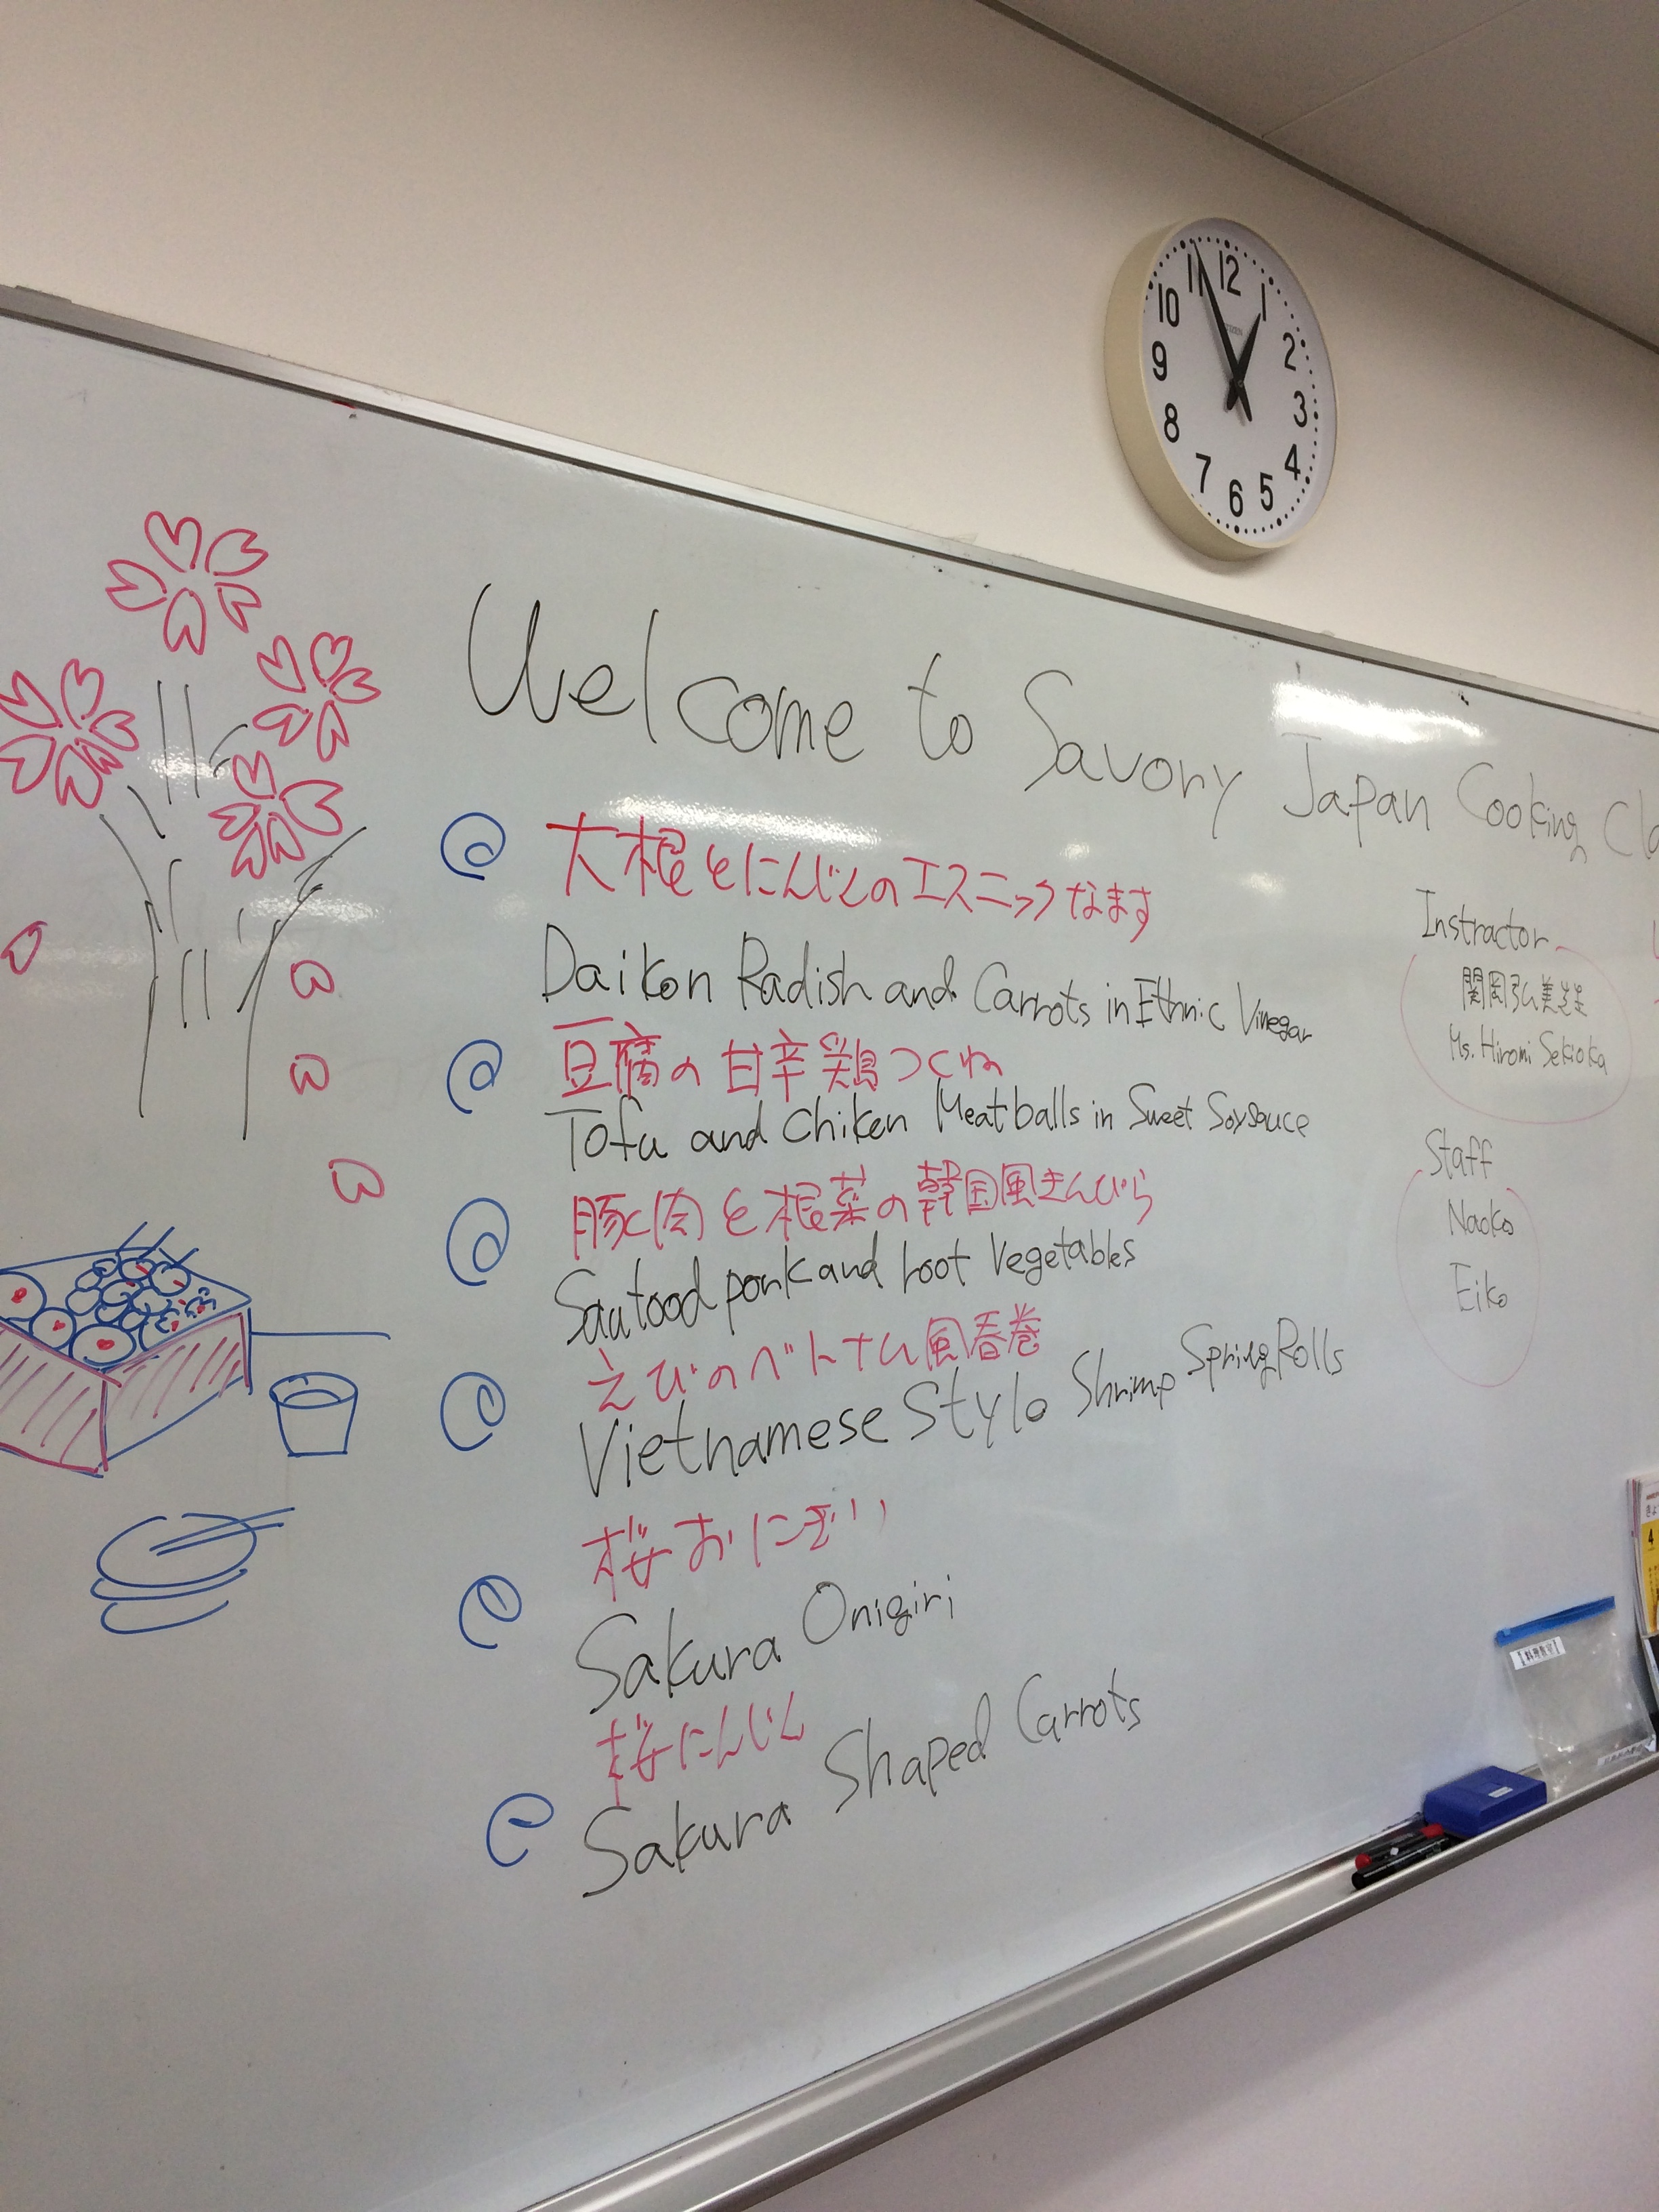 Welcome to Savory Japan Cooking Cla
大根とにんじんのエスニックなます
Daikon Radish and Carrots in Ethnic Vinegar
豆腐の甘辛鶏つくね
Tofu and Chiken Meatballs in Sweet Soysauce
豚肉と根菜の韓国風きんぴら
Sautood pork and root vegetables
えびのベトナム風春巻
Vietnamese Style Shrimp Spring Rolls
桜おにぎり
Sakura Onigiri
桜にんじん
Sakura Shaped Carrots
Instractor
関岡弘美先生
Ms. Hiromi Sekioka
Staff
Naoko
Eiko
12
1
2
3
4
5
6
7
8
9
10
11
CITIZEN
【料理教室】
4